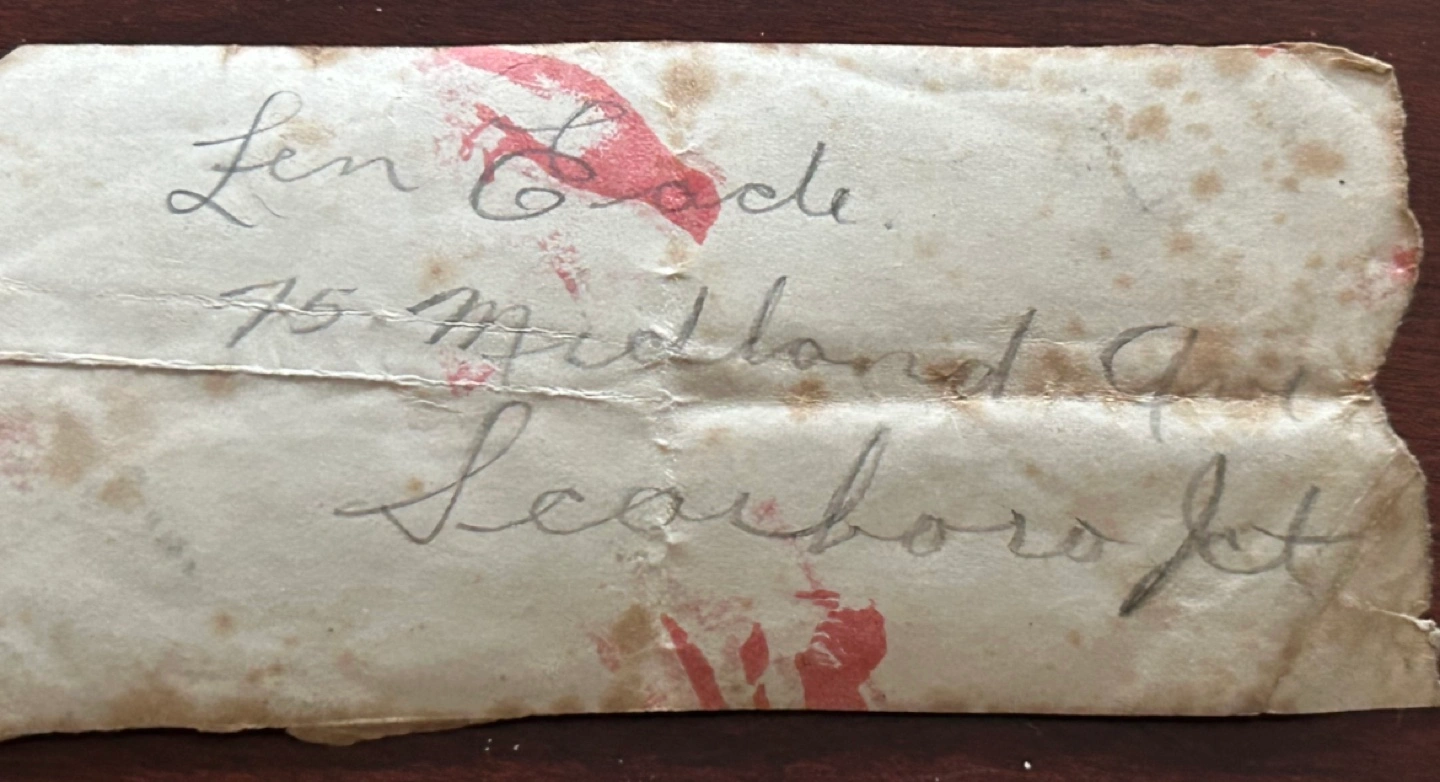 Len Eade.
75 Midland Ave
Scarboro Jct